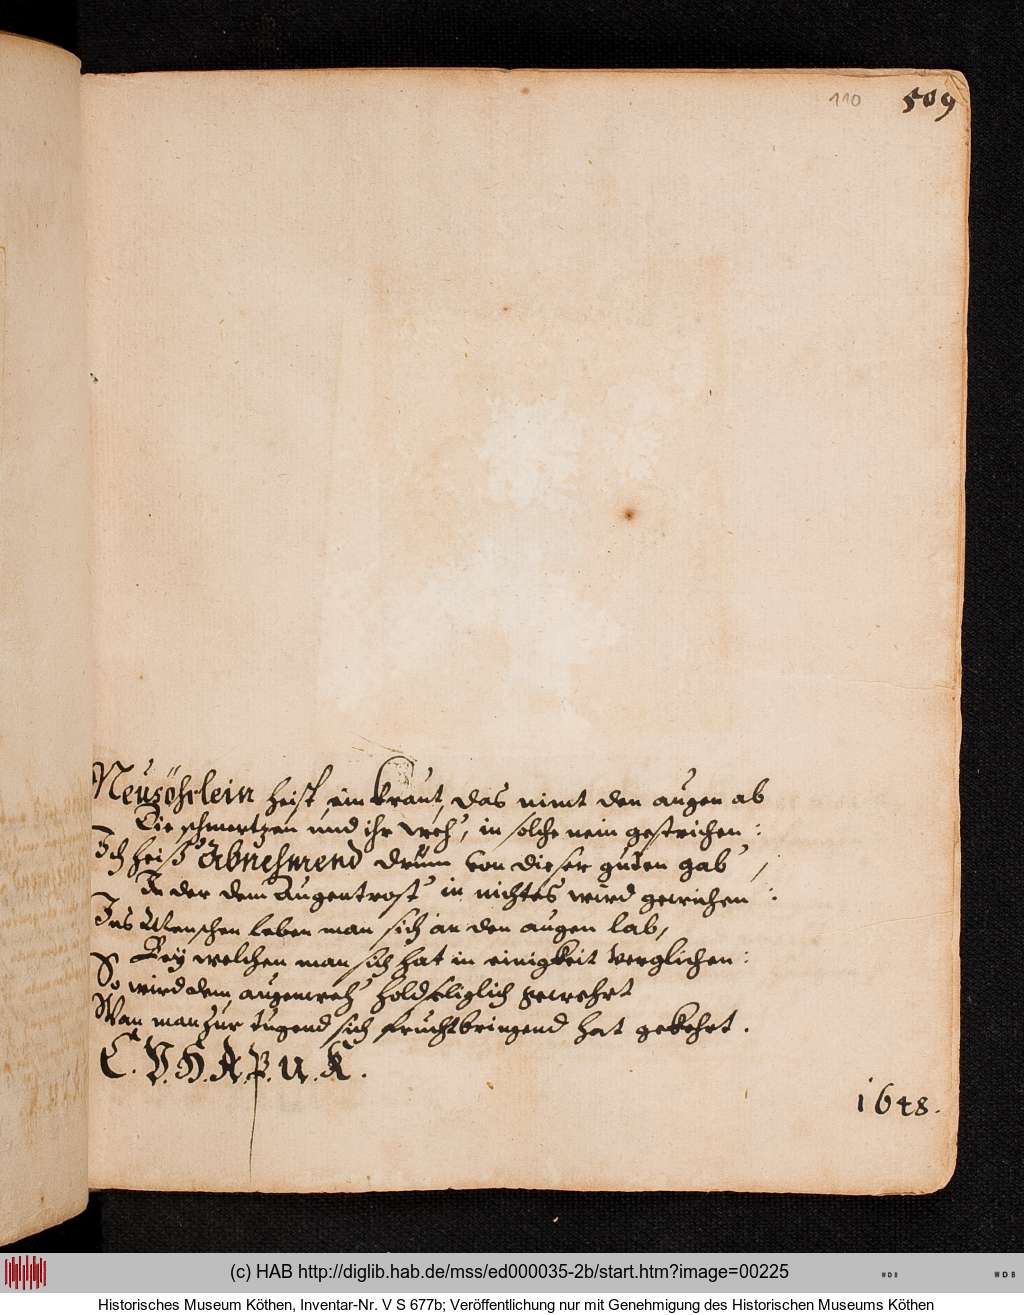 110
509
Neusöhrlein heist ein kraut, das nimt den augen ab
Die schmertzen und ihr weh, in solche nein gestrichen:
Ich heiß Abnehmend drum von dieser guten gab,
In der dem Augentrost in nichtes wird gewichen:
Ins Menschen leben man sich an den augen lab,
Bey welchen man sich hat in einigkeit verglichen:
So wird dem augenweh holdseliglich gewehrt
Wan man zur tugend sich fruchtbringend hat gekehrt.
C. V. H. A. P. U. K.
1648.
(c) HAB http://diglib.hab.de/mss/ed000035-2b/start.htm?image=00225
WDB
WDB
Historisches Museum Köthen, Inventar-Nr. V S 677b; Veröffentlichung nur mit Genehmigung des Historischen Museums Köthen